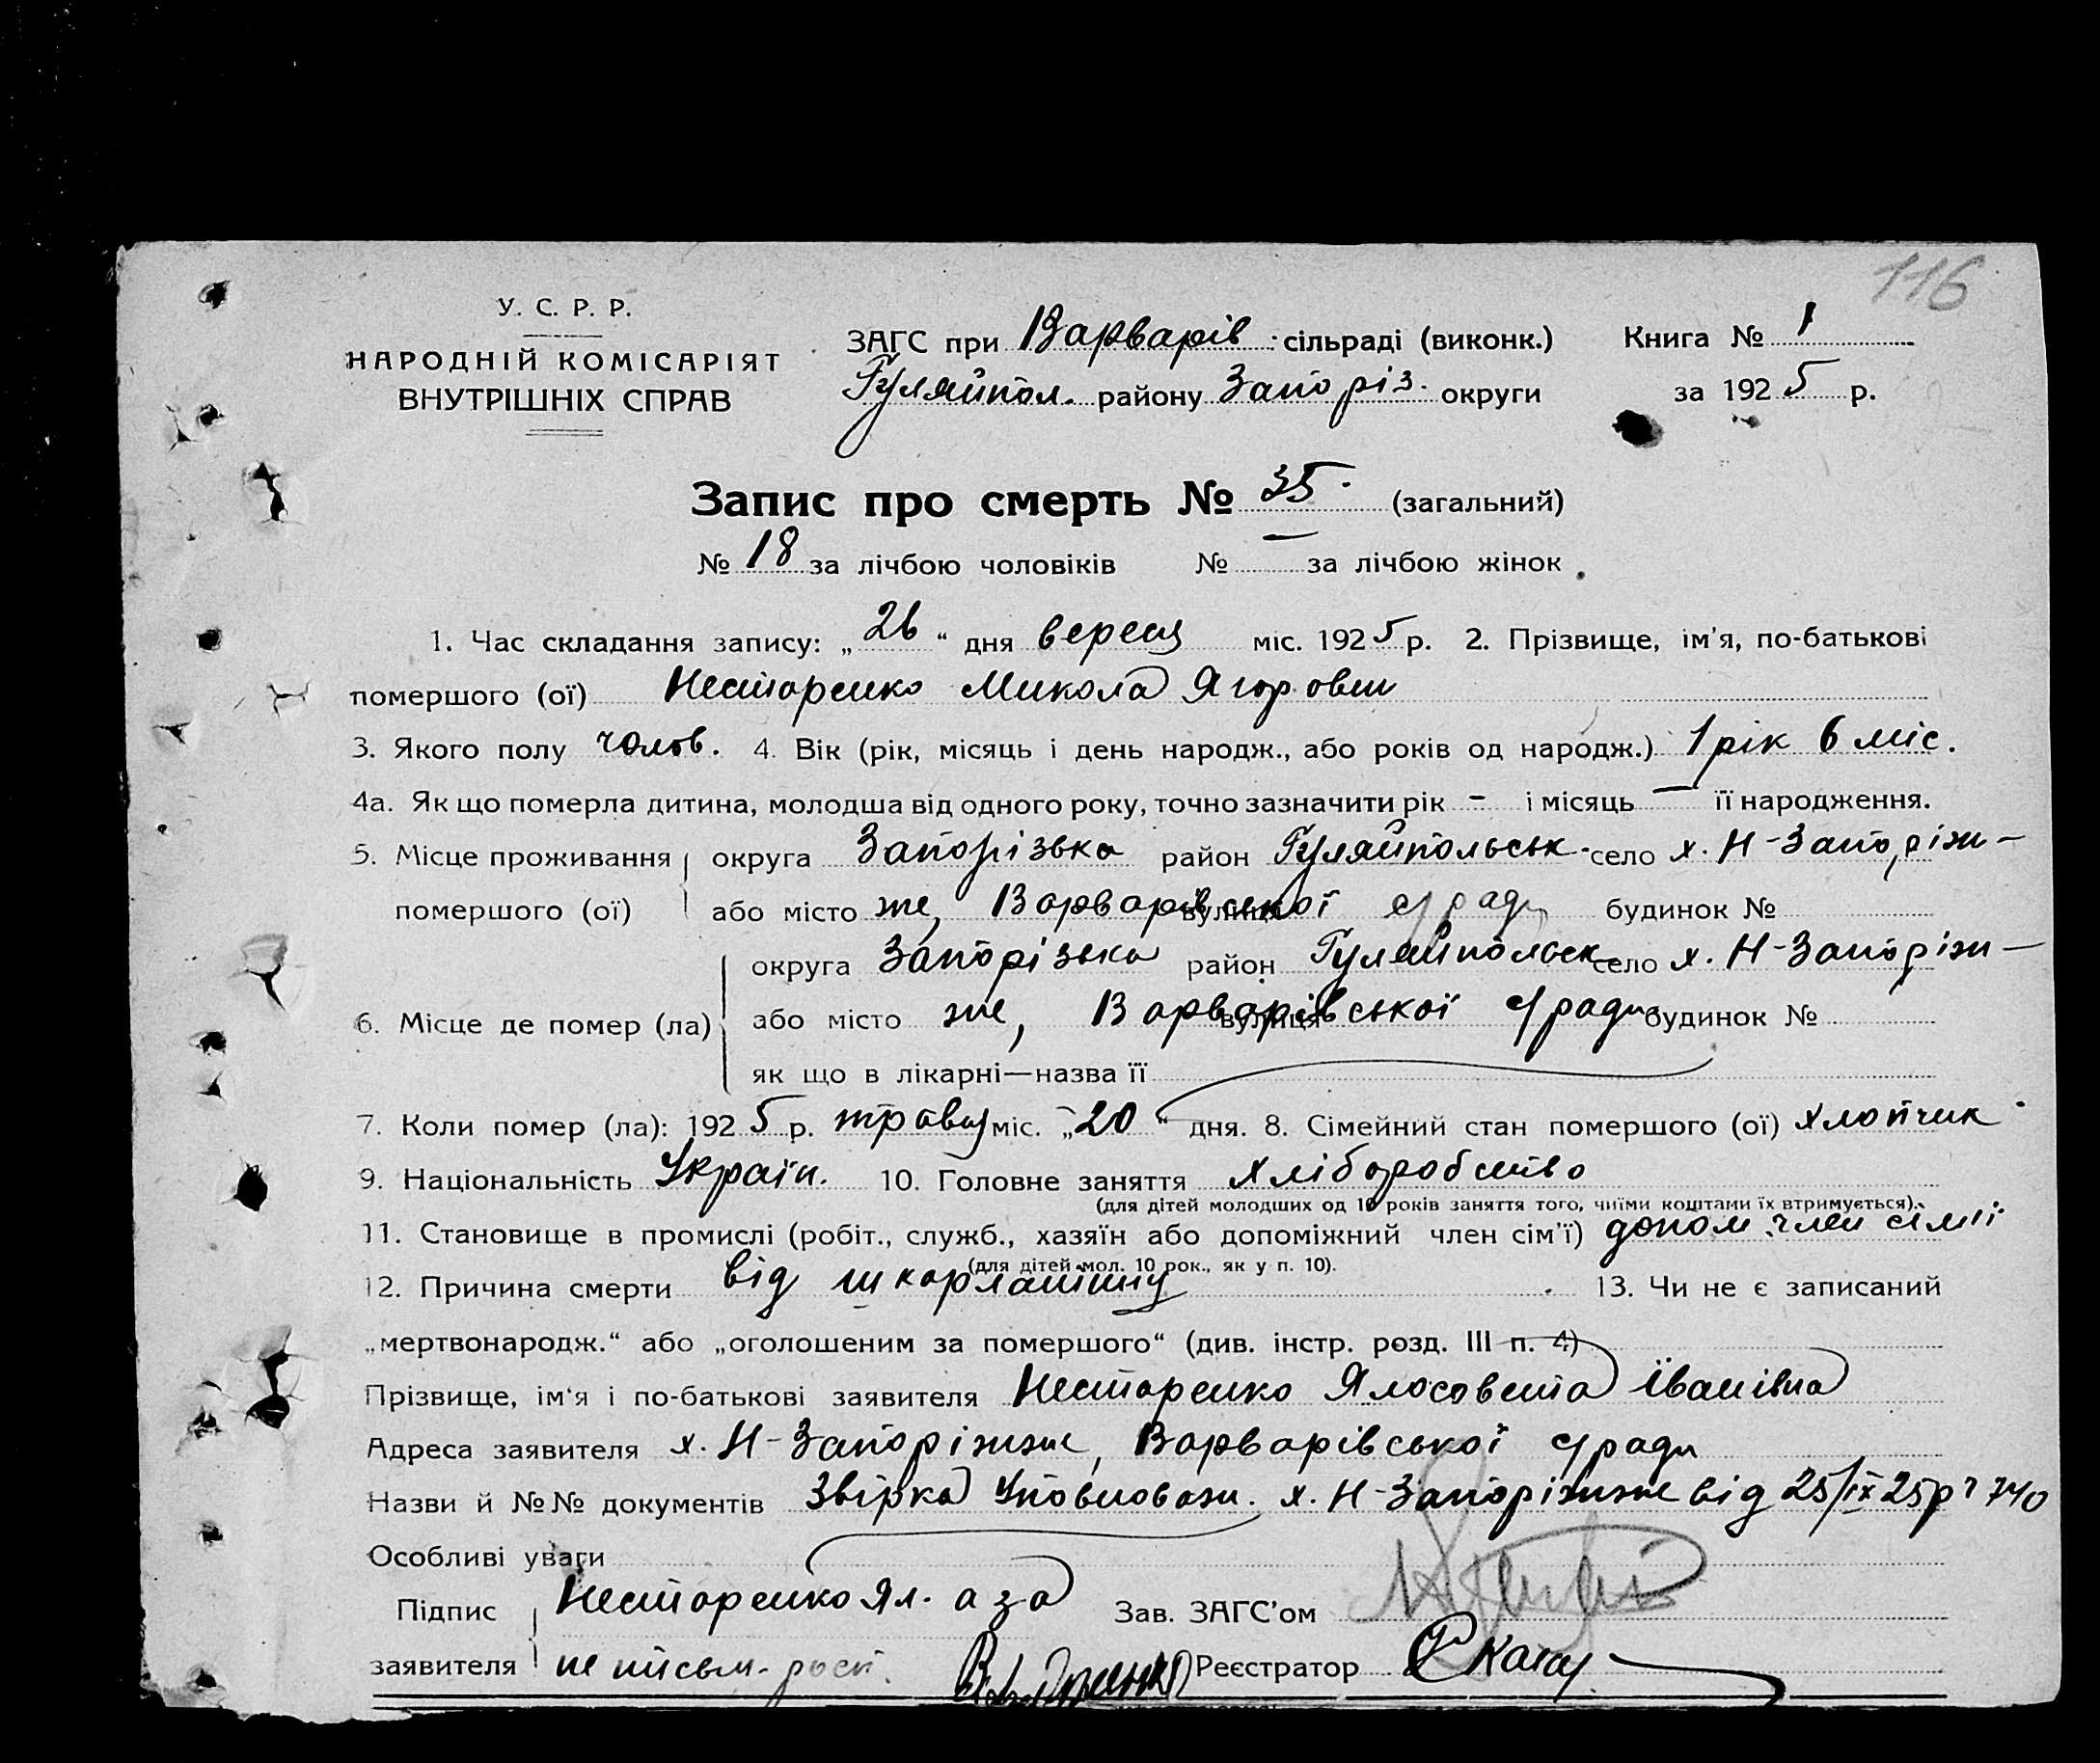 116
У. С. Р. Р.
НАРОДНІЙ КОМІСАРІЯТ
ВНУТРІШНІХ СПРАВ
ЗАГС при Варварів сільраді (виконк.) Книга № 1
Гуляйпол. району Запоріз. округи за 1925 р.
Запис про смерть № 35 (загальний)
№ 18 за лічбою чоловіків № — за лічбою жінок
1. Час складання запису: „26“ дня вересн міс. 1925 р. 2. Прізвище, ім'я, по-батькові
помершого (ої) Нестаренко Микола Ягорович
3. Якого полу чолов. 4. Вік (рік, місяць і день народж., або років од народж.) 1 рік 6 міс.
4а. Як що померла дитина, молодша від одного року, точно зазначити рік – і місяць — її народження.
5. Місце проживання округа Запорізька район Гуляйпольськ. село х. Н-Запоріж-
помершого (ої) або місто же, Варварівської с/ради вулиця будинок №
округа Запорізька район Гуляйпольск село х. Н-Запоріж-
6. Місце де помер (ла) або місто же, Варварівської с/ради вулиця будинок №
як що в лікарні—назва її
7. Коли помер (ла): 1925 р. травн міс. „20“ дня. 8. Сімейний стан помершого (ої) хлопчик
9. Національність Україн. 10. Головне заняття хліборобство
(для дітей молодших од 10 років заняття того, чиїми коштами їх втримується).
11. Становище в промислі (робіт., служб., хазяїн або допоміжний член сім'ї) допом. член сімії
(для дітей мол. 10 рок., як у п. 10).
12. Причина смерти від шкарлатину 13. Чи не є записаний
„мертвонародж.“ або „оголошеним за помершого“ (див. інстр. розд. III п. 4)
Прізвище, ім'я і по-батькові заявителя Нестаренко Ялосовета Іванівна
Адреса заявителя х. Н-Запоріжже, Варварівської с/ради
Назви й №№ документів Звірка Уповноваж. х. Н-Запоріжже від 25/IX 25р 740
Особливі уваги
Підпис Нестаренко Ял. а за Зав. ЗАГС'ом
заявителя не письм. росп. Реєстратор